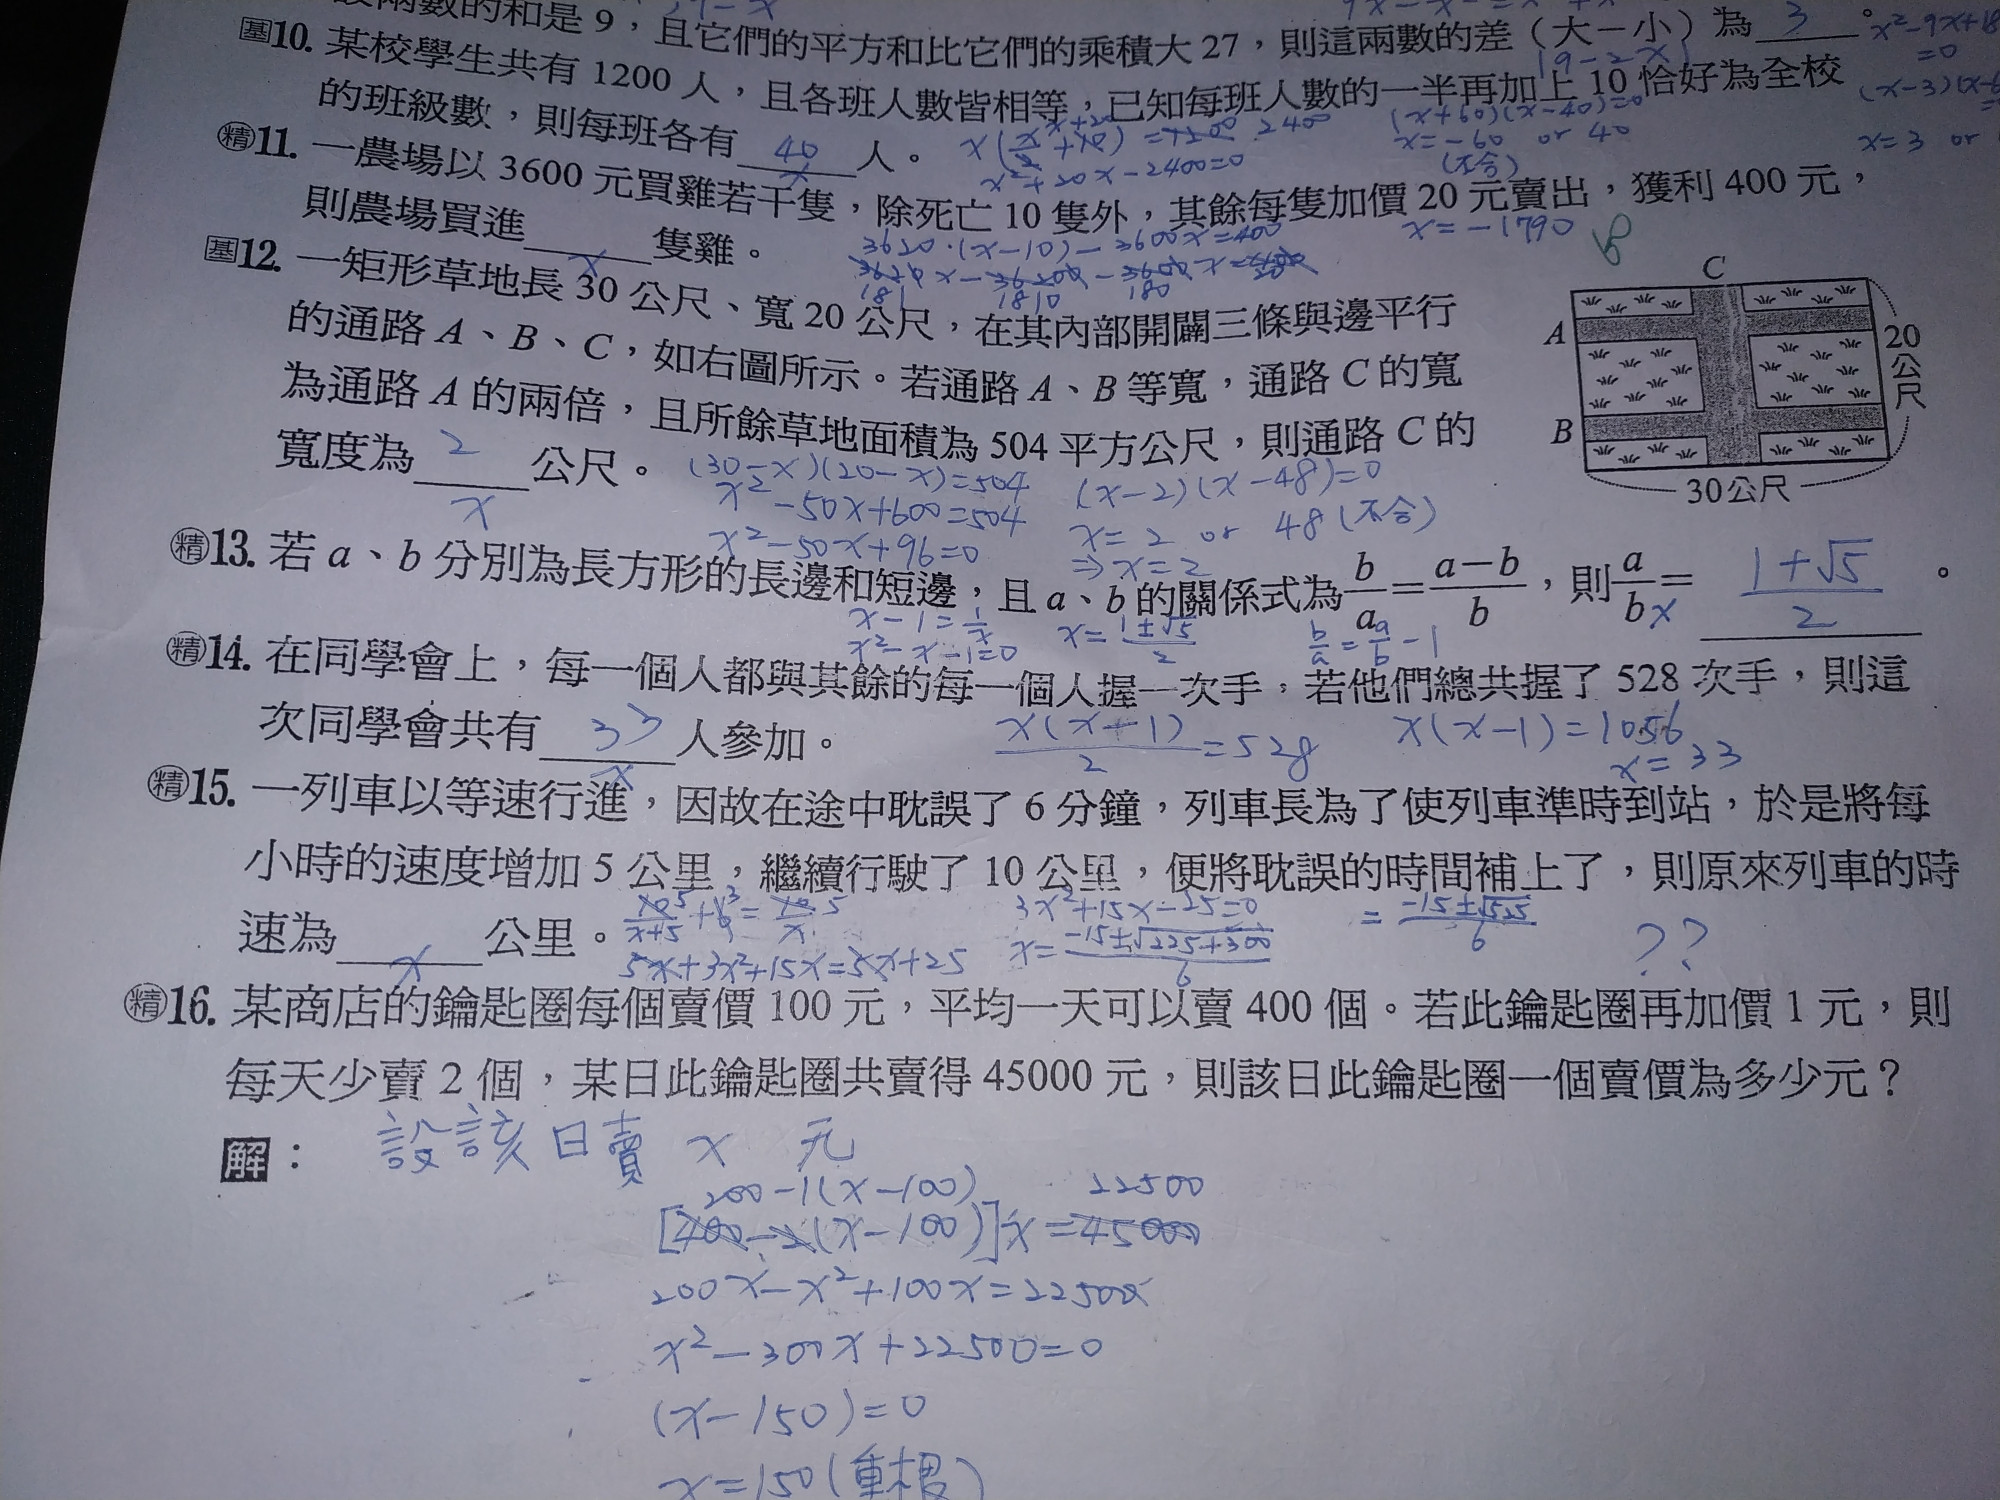 兩數的和是9，且它們的平方和比它們的乘積大27，則這兩數的差（大－小）為 3 。 x²-9x+18
=0
基10. 某校學生共有1200人，且各班人數皆相等，已知每班人數的一半再加上10恰好為全校
的班級數，則每班各有 40 人。
x
x²+20x-2400=0
(x+60)(x-40)=0
x=-60 or 40
(不合)
x=3 or
精11. 一農場以3600元買雞若干隻，除死亡10隻外，其餘每隻加價20元賣出，獲利400元，
則農場買進 x 隻雞。
3620·(x-10)-3600x=400
x=-1790
181 1810 180
基12. 一矩形草地長30公尺、寬20公尺，在其內部開闢三條與邊平行
的通路A、B、C，如右圖所示。若通路A、B等寬，通路C的寬
為通路A的兩倍，且所餘草地面積為504平方公尺，則通路C的
寬度為 2 公尺。
x
(30-x)(20-x)=504
x²-50x+600=504
x²-50x+96=0
(x-2)(x-48)=0
x=2 or 48(不合)
⇒x=2
C
A
B
20公尺
30公尺
精13. 若a、b分別為長方形的長邊和短邊，且a、b的關係式為b/a=(a-b)/b，則a/b= (1+√5)/2 。
x
x-1=1/x
x²-x-1=0
x=(1±√5)/2
b/a=a/b-1
精14. 在同學會上，每一個人都與其餘的每一個人握一次手，若他們總共握了528次手，則這
次同學會共有 33 人參加。
x
x(x-1)/2=528
x(x-1)=1056
x=33
精15. 一列車以等速行進，因故在途中耽誤了6分鐘，列車長為了使列車準時到站，於是將每
小時的速度增加5公里，繼續行駛了10公里，便將耽誤的時間補上了，則原來列車的時
速為 x 公里。
5x+3x²+15x=5x+25
3x²+15x-25=0
x=(-15±√(225+300))/6
=(-15±√525)/6
??
精16. 某商店的鑰匙圈每個賣價100元，平均一天可以賣400個。若此鑰匙圈再加價1元，則
每天少賣2個，某日此鑰匙圈共賣得45000元，則該日此鑰匙圈一個賣價為多少元？
解：設該日賣 x 元
200-1(x-100) 22500
[400-2(x-100)]x=45000
200x-x²+100x=22500
x²-300x+22500=0
(x-150)=0
x=150(重根)